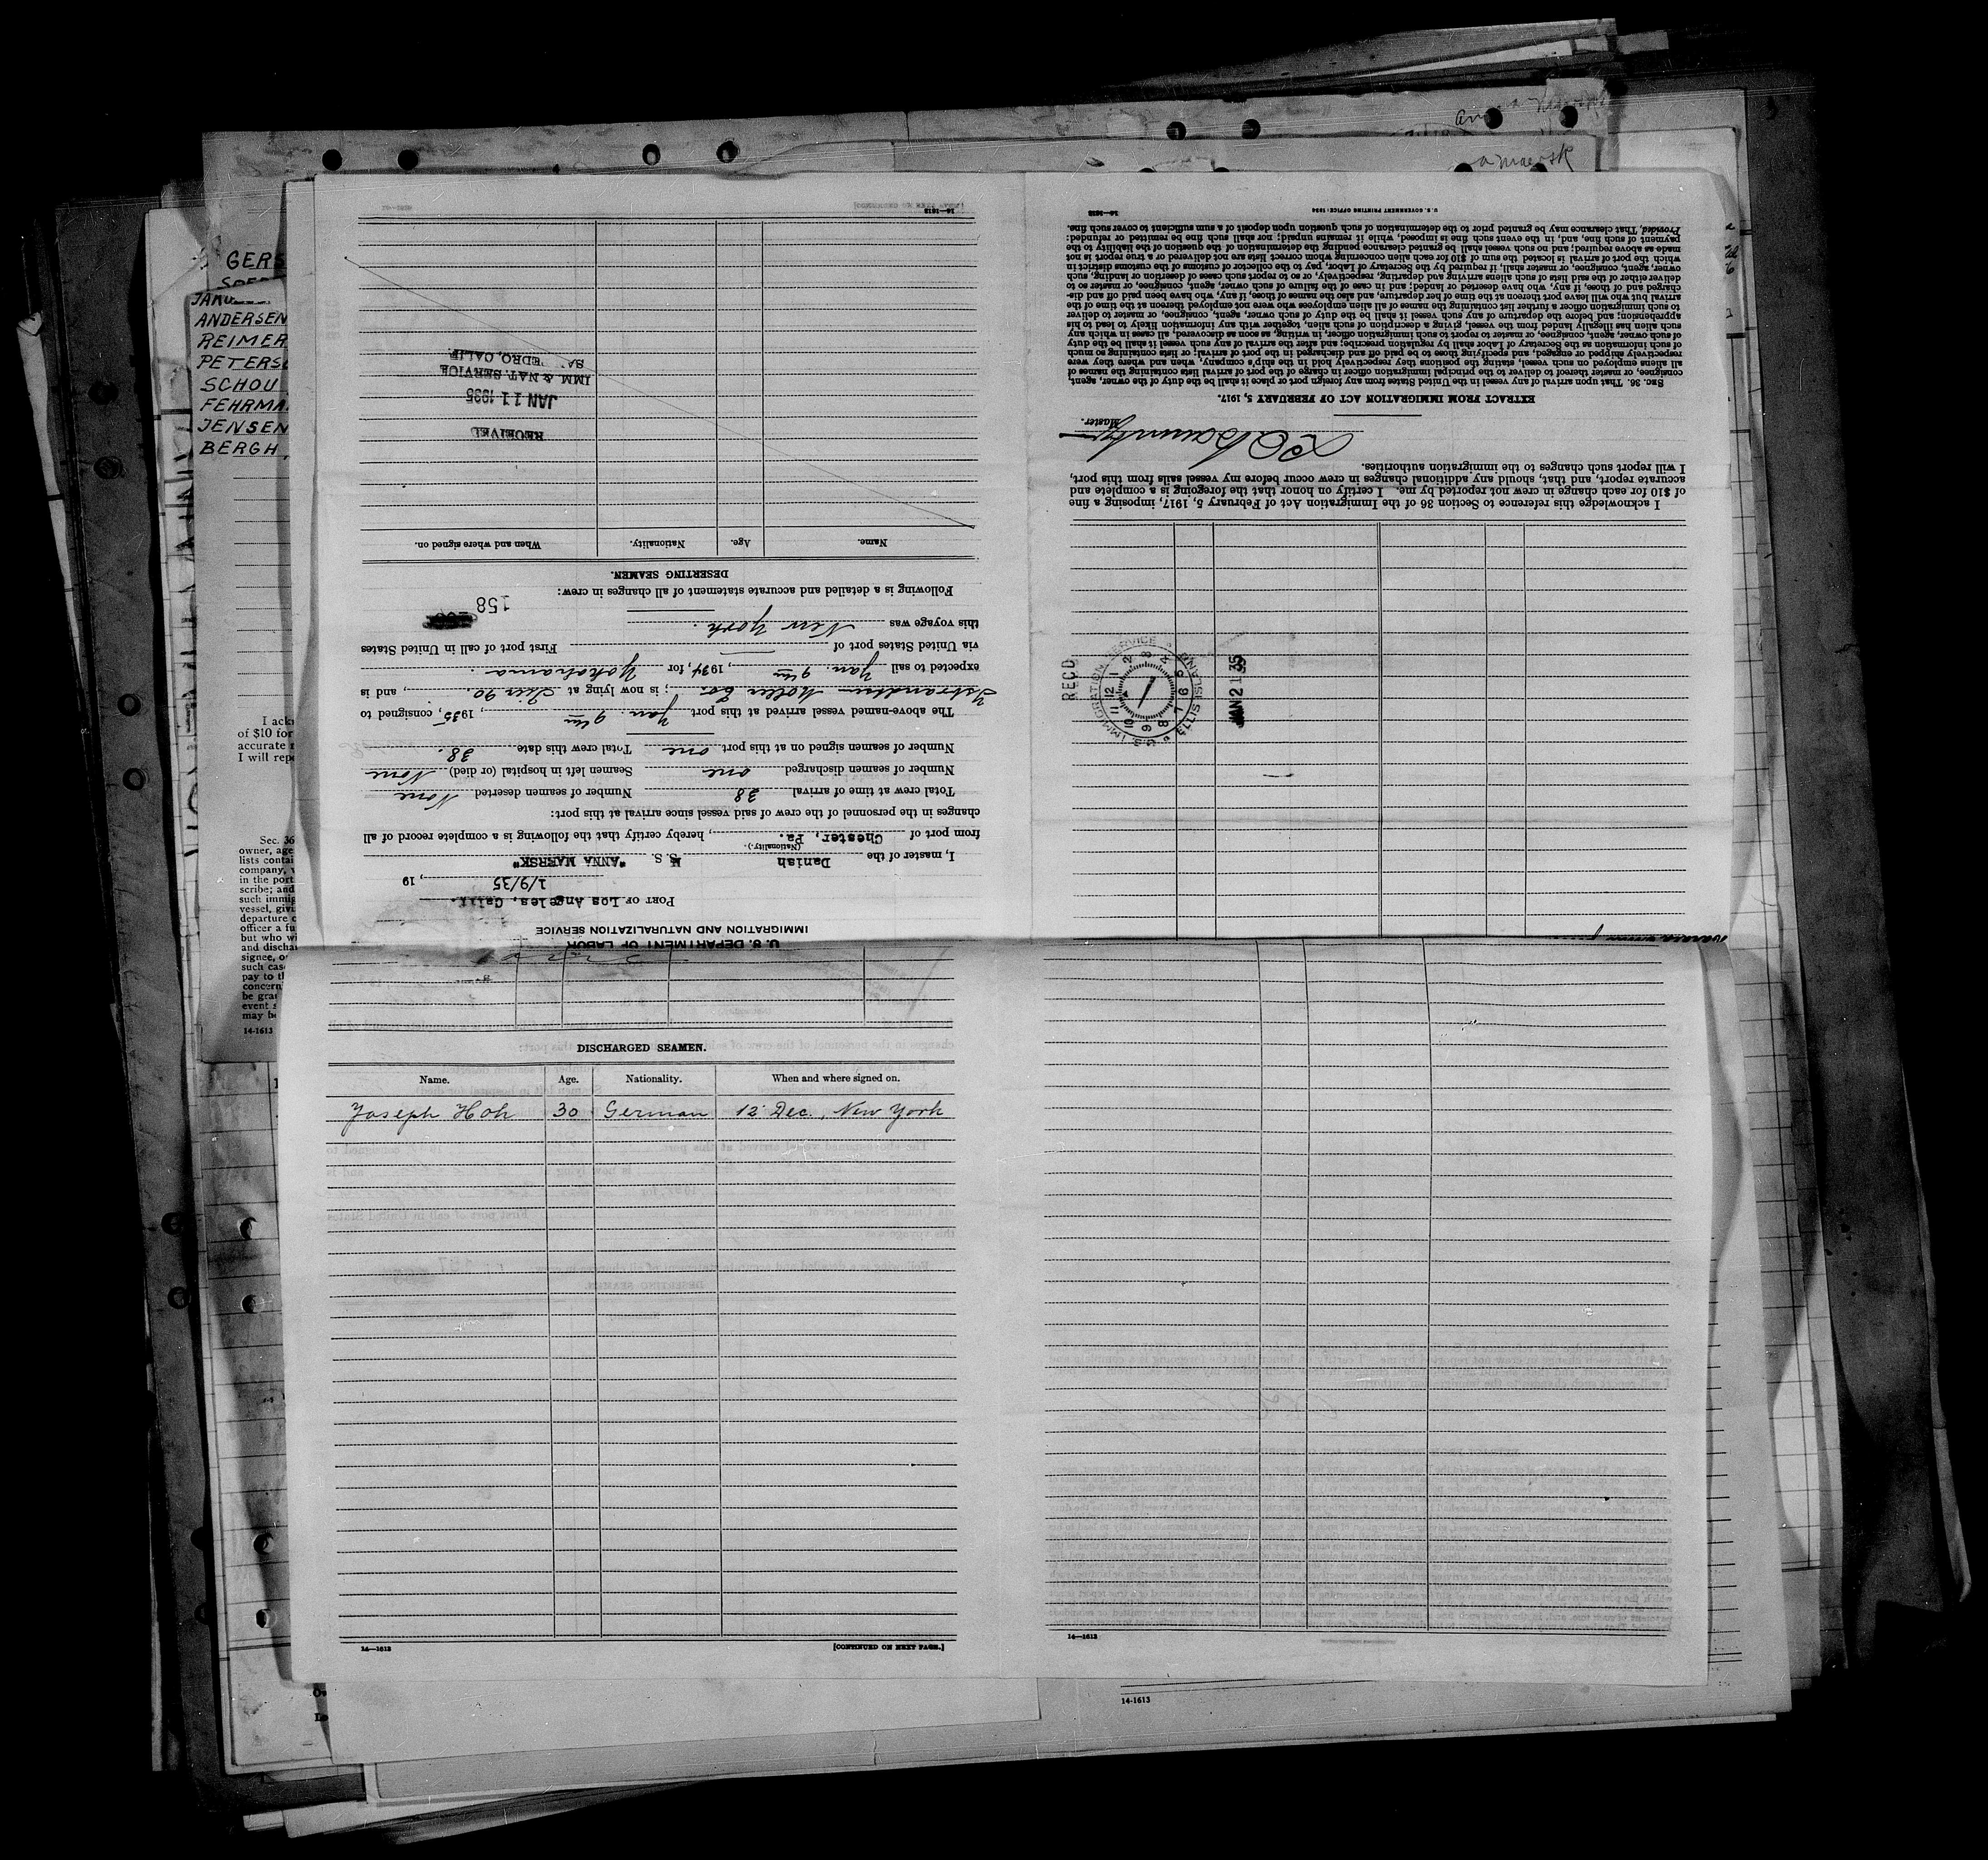 U. S. DEPARTMENT OF LABOR
IMMIGRATION AND NATURALIZATION SERVICE
PORT OF Los Angeles, Calif.
1/9/35, 19
I, master of the Danish M. S. "ANNA MAERSK"
(Nationality.)
from port of Chester, Pa., hereby certify that the following is a complete record of all
changes in the personnel of the crew of said vessel since arrival at this port:
Total crew at time of arrival 38 Number of seamen deserted None
Number of seamen discharged one Seamen left in hospital (or died) None
Number of seamen signed on at this port one Total crew this date 38.
The above-named vessel arrived at this port Jan. 9th, 1935, consigned to
Moller Co.; is now lying at Pier 90., and is
expected to sail Jan. 9th, 1934, for Yokohama.
via United States port of First port of call in United States
this voyage was New York.
158
Following is a detailed and accurate statement of all changes in crew:
DESERTING SEAMEN.
Name. Age. Nationality. When and where signed on.
RECEIVED
JAN 11 1935
IMM & NAT. SERVICE
SAN PEDRO, CALIF.
14—1613
DISCHARGED SEAMEN.
Name. Age. Nationality. When and where signed on.
Joseph Hoh 30 German 12 Dec., New York
14—1613 [CONTINUED ON NEXT PAGE.]
14—1613
14-1613
REC'D
U.S. IMMIGRATION SERVICE
JAN 21 35
I acknowledge this reference to Section 36 of the Immigration Act of February 5, 1917, imposing a fine
of $10 for each change in crew not reported by me. I certify on honor that the foregoing is a complete and
accurate report, and that, should any additional changes in crew occur before my vessel sails from this port,
I will report such changes to the immigration authorities.
Master.
EXTRACT FROM IMMIGRATION ACT OF FEBRUARY 5, 1917.
SEC. 36. That upon arrival of any vessel in the United States from any foreign port or place it shall be the duty of the owner, agent,
consignee, or master thereof to deliver to the principal immigration officer in charge of the port of arrival lists containing the names of
all aliens employed on such vessel, stating the positions they respectively hold in the ship's company, when and where they were
respectively shipped or engaged, and specifying those to be paid off and discharged in the port of arrival; or lists containing so much
of such information as the Secretary of Labor shall by regulation prescribe; and after the arrival of any such vessel it shall be the duty
of such owner, agent, consignee, or master to report to such immigration officer, in writing, as soon as discovered, all cases in which any
such alien has illegally landed from the vessel, giving a description of such alien, together with any information likely to lead to his
apprehension; and before the departure of any such vessel it shall be the duty of such owner, agent, consignee, or master to deliver
to such immigration officer a further list containing the names of all alien employees who were not employed thereon at the time of the
arrival but who will leave port thereon at the time of her departure, and also the names of those, if any, who have been paid off and dis-
charged and of those, if any, who have deserted or landed; and in case of the failure of such owner, agent, consignee, or master so to
deliver either of the said lists of such aliens arriving and departing, respectively, or so to report such cases of desertion or landing, such
owner, agent, consignee, or master, shall, if required by the Secretary of Labor, pay to the collector of customs of the customs district in
which the port of arrival is located the sum of $10 for each alien concerning whom correct lists are not delivered or a true report is not
made as above required; and no such vessel shall be granted clearance pending the determination of the question of the liability to the
payment of such fine, and, in the event such fine is imposed, while it remains unpaid; nor shall such fine be remitted or refunded:
Provided, That clearance may be granted prior to the determination of such question upon deposit of a sum sufficient to cover such fine.
U. S. GOVERNMENT PRINTING OFFICE: 1934 14—1613
GERS
ANDERSEN
REIMER
PETERS
SCHOU
FEHRMA
JENSEN
BERGH,
I ack
of $10 for
accurate r
I will rep
Sec. 36
owner, age
lists contai
company, w
in the port
scribe; and
such immig
vessel, givi
departure o
officer a fu
but who wi
and dischar
signee, or
such case
pay to th
concern
be gran
event s
may be
14-1613